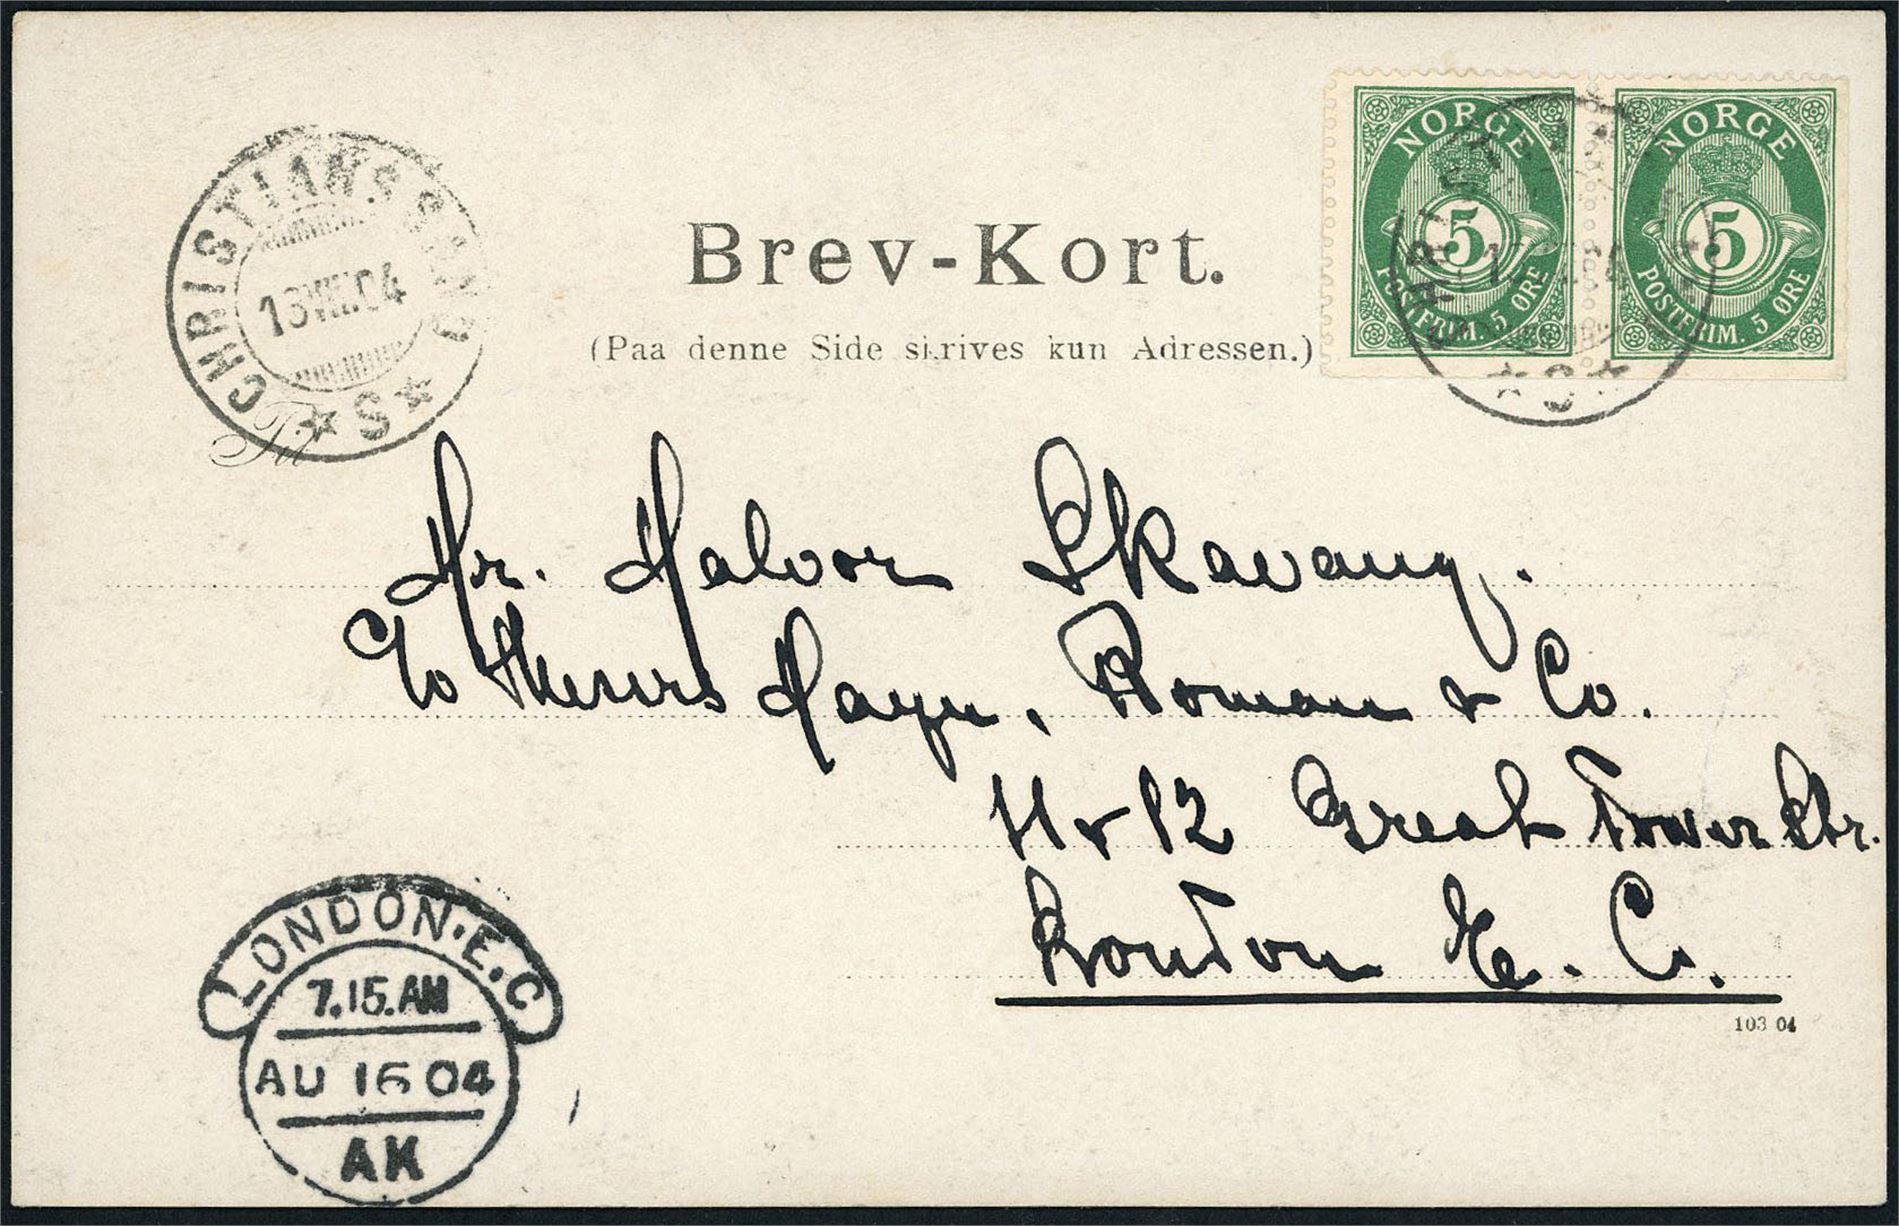 CHRISTIANSSAND
13 VIII.04
S
NORGE
5
POSTFRIM. 5 ØRE
NORGE
5
POSTFRIM. 5 ØRE
CHRI
S
Brev-Kort.
(Paa denne Side skrives kun Adressen.)
Til
Mr. Halvor Skavang.
c/o Messrs Hayn, Roman & Co.
11 & 12 Great Tower Str.
London E. C.
103 04
LONDON.E.C
7.15.AM
AU 16 04
AK